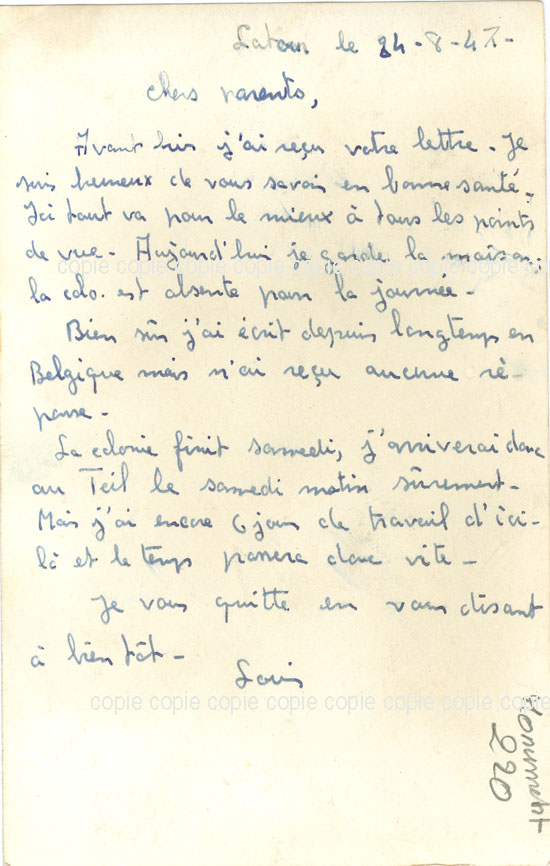 Latour le 24-8-47-
Chers parents,
Avant hier j'ai reçu votre lettre. Je
suis heureux de vous savoir en bonne santé.
Ici tout va pour le mieux à tous les points
de vue. Aujourd'hui je garde la maison,
copie copie copie copie copie copie copie copie
la colo. est absente pour la journée.
Bien sûr j'ai écrit depuis longtemps en
Belgique mais n'ai reçu aucune ré-
ponse.
La colonie finit samedi, j'arriverai donc
au Teil le samedi matin sûrement.
Mais j'ai encore 6 jours de travail d'ici-
là et le temps passera donc vite.
Je vous quitte en vous disant
à bientôt.
Louis
copie copie copie copie copie copie copie copie
Monument
220